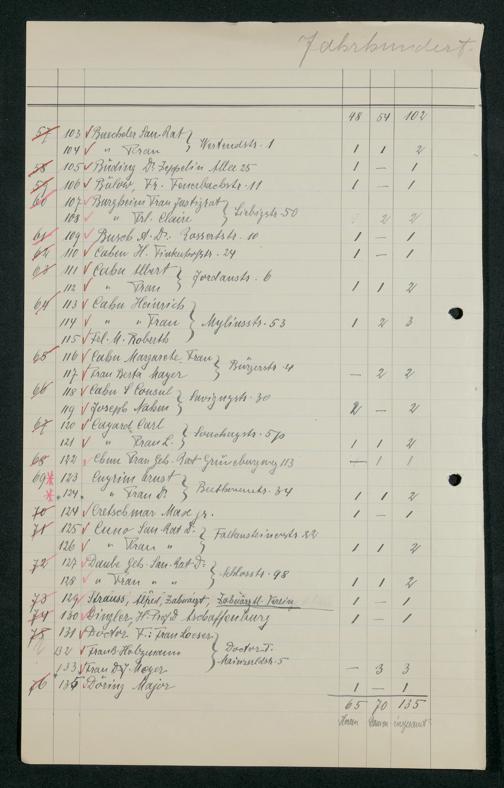 Jahrhundert.
48 54 102
57 103 Buecheler San. Rat
104 " Frau } Westendstr. 1 1 1 2
58 105 Büding Dr. Zeppelin Allee 25 1 — 1
59 106 Bülow, Fr. Feuerbachstr. 11 1 — 1
60 107 Burgheim Frau Justizrat
108 " Frl. Claire } Liebigstr. 50 2 2
61 109 Busch A. Dr. Rossertstr. 10 1 — 1
62 110 Cahn H. Finkenhofstr. 24 1 — 1
63 111 Cahn Albert
112 " Frau } Jordanstr. 6 1 1 2
64 113 Cahn Heinrich
114 " " Frau } Myliusstr. 53 1 2 3
115 Frl. M. Roberth
65 116 Cahn Margarete Frau
117 Frau Berta Mayer } Bürgerstr. 4 — 2 2
66 118 Cahn S Consul
119 Joseph Nahm } Savignystr. 30 2 — 2
67 120 Cayard Carl
121 " Frau L. } 1 1 2
68 122 Frau Geh. Rat Grüneburgweg 113 — 1 1
69 123 Cnyrim Ernst
124 " Frau Dr. } Beethovenstr. 34 1 1 2
70 124 Cretschmar Max jr. 1 — 1
71 125 Cuno San. Rat Dr.
126 " Frau " } Falkensteinerstr. 22 1 1 2
72 127 Daube Geh. San. Rat Dr.
128 " Frau " " } Schlossstr. 98 1 1 2
73 129 Krauss, Alfred, Zahnarzt, Zahnärztl. Verein 1 — 1
74 130 Dingler, H. Prof. D. Aschaffenburg 1 — 1
75 131 Doctor F. : Frau Loeser
132 Frau B. Holzmann } Doctor F.
133 Frau D. J. Meyer Mainzerldstr. 5 — 3 3
76 135 Döring Major 1 — 1
65 70 135
Herren Damen insgesamt